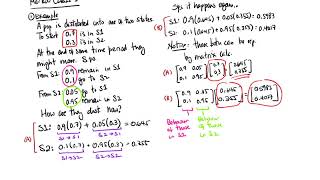 ① Example
A pop is distributed into one of two states.
Start { 0.7 is in S1
0.3 is in S2
At the end of some time period they
might move. Spse
From S1: 0.9 remain in S1
0.1 go to S2
From S2: 0.05 go to S1
0.95 remain in S2
How are they dist now?
(A) S1: 0.9(0.7) + 0.05(0.3) = 0.645
S1→S1 S2→S1
S2: 0.1(0.7) + 0.95(0.3) = 0.355
S1→S2 S2→S2
Sps it happens again...
(B) S1: 0.9(0.645) + 0.05(0.355) = 0.5983
S2: 0.1(0.645) + 0.95(0.355) = 0.4017
Notice: these both can be rep.
by matrix calc.
(A) [0.9 0.05 0.1 0.95] [0.7 0.3] = [0.645 0.355]
(B) [0.9 0.05 0.1 0.95] [0.645 0.355] = [0.5983 0.4017]
Behavior of those in S1
Behavior of those in S2